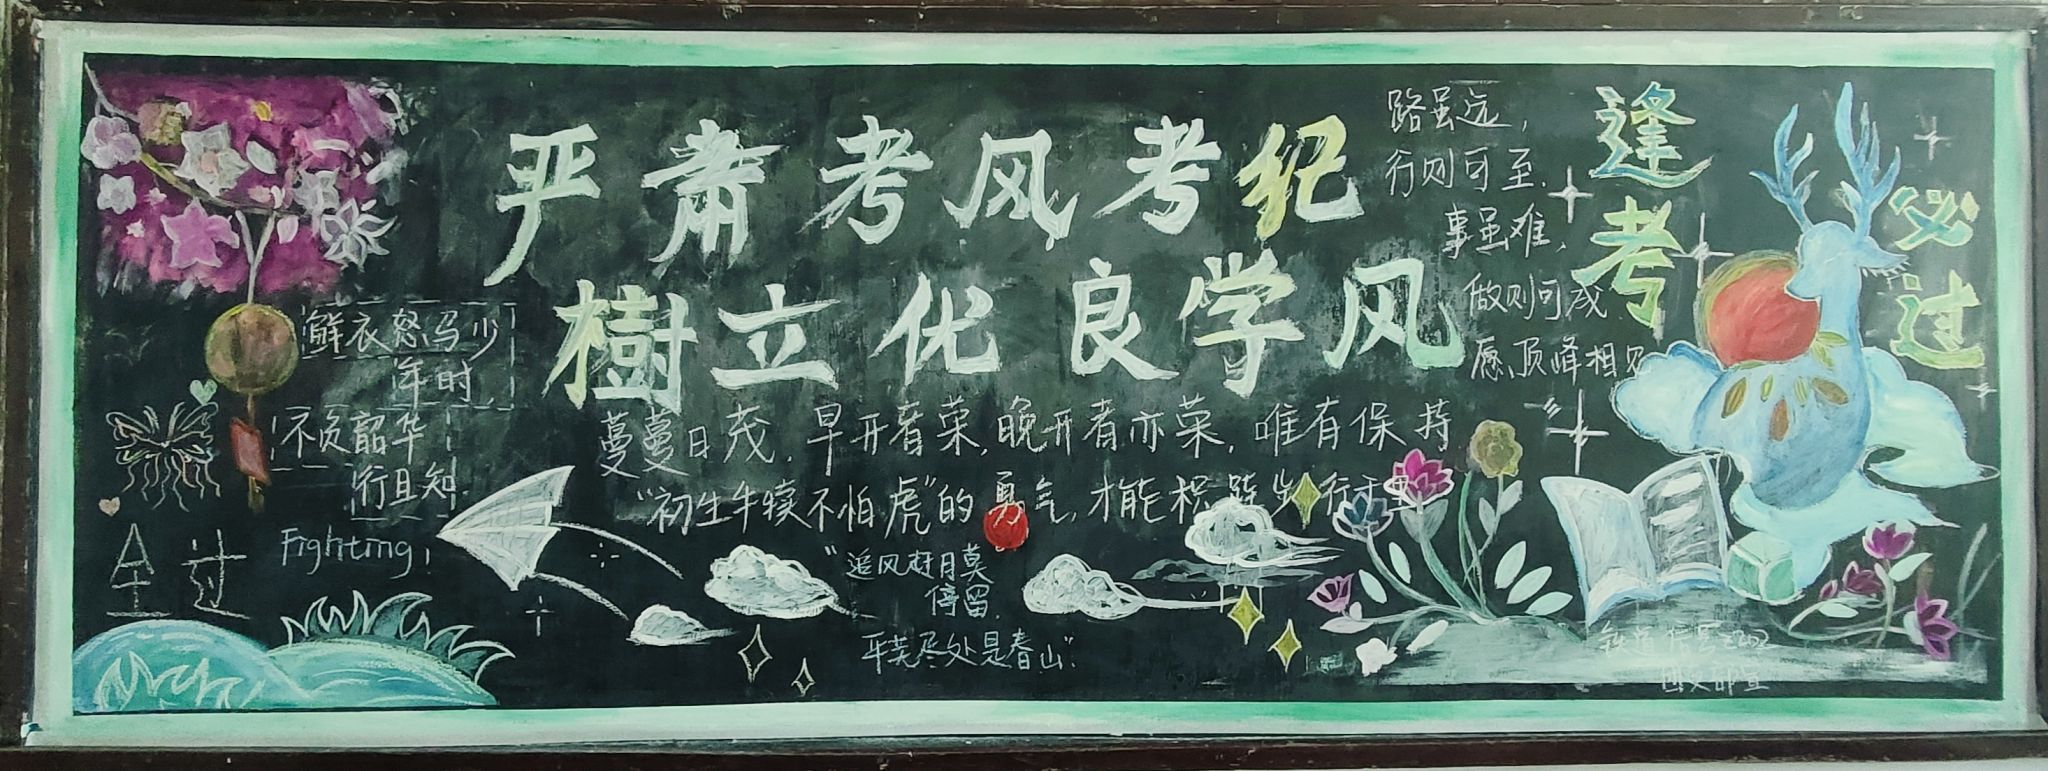 严肃考风考纪
樹立优良学风
鲜衣怒马少
年时
不负韶华
行且知
Fighting!
全过
蔓蔓日茂，早开者荣，晚开者亦荣，唯有保持
“初生牛犊不怕虎”的勇气，才能积跬步行千里
“追风赶月莫
停留，
平芜尽处是春山”.
路虽远，
行则可至.
事虽难，
做则可成
愿顶峰相见
逢考
必过
铁道信号2202